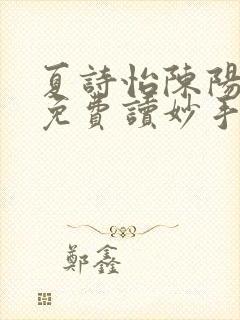 夏詩怡陳陽
免費讀妙手
鄭鑫